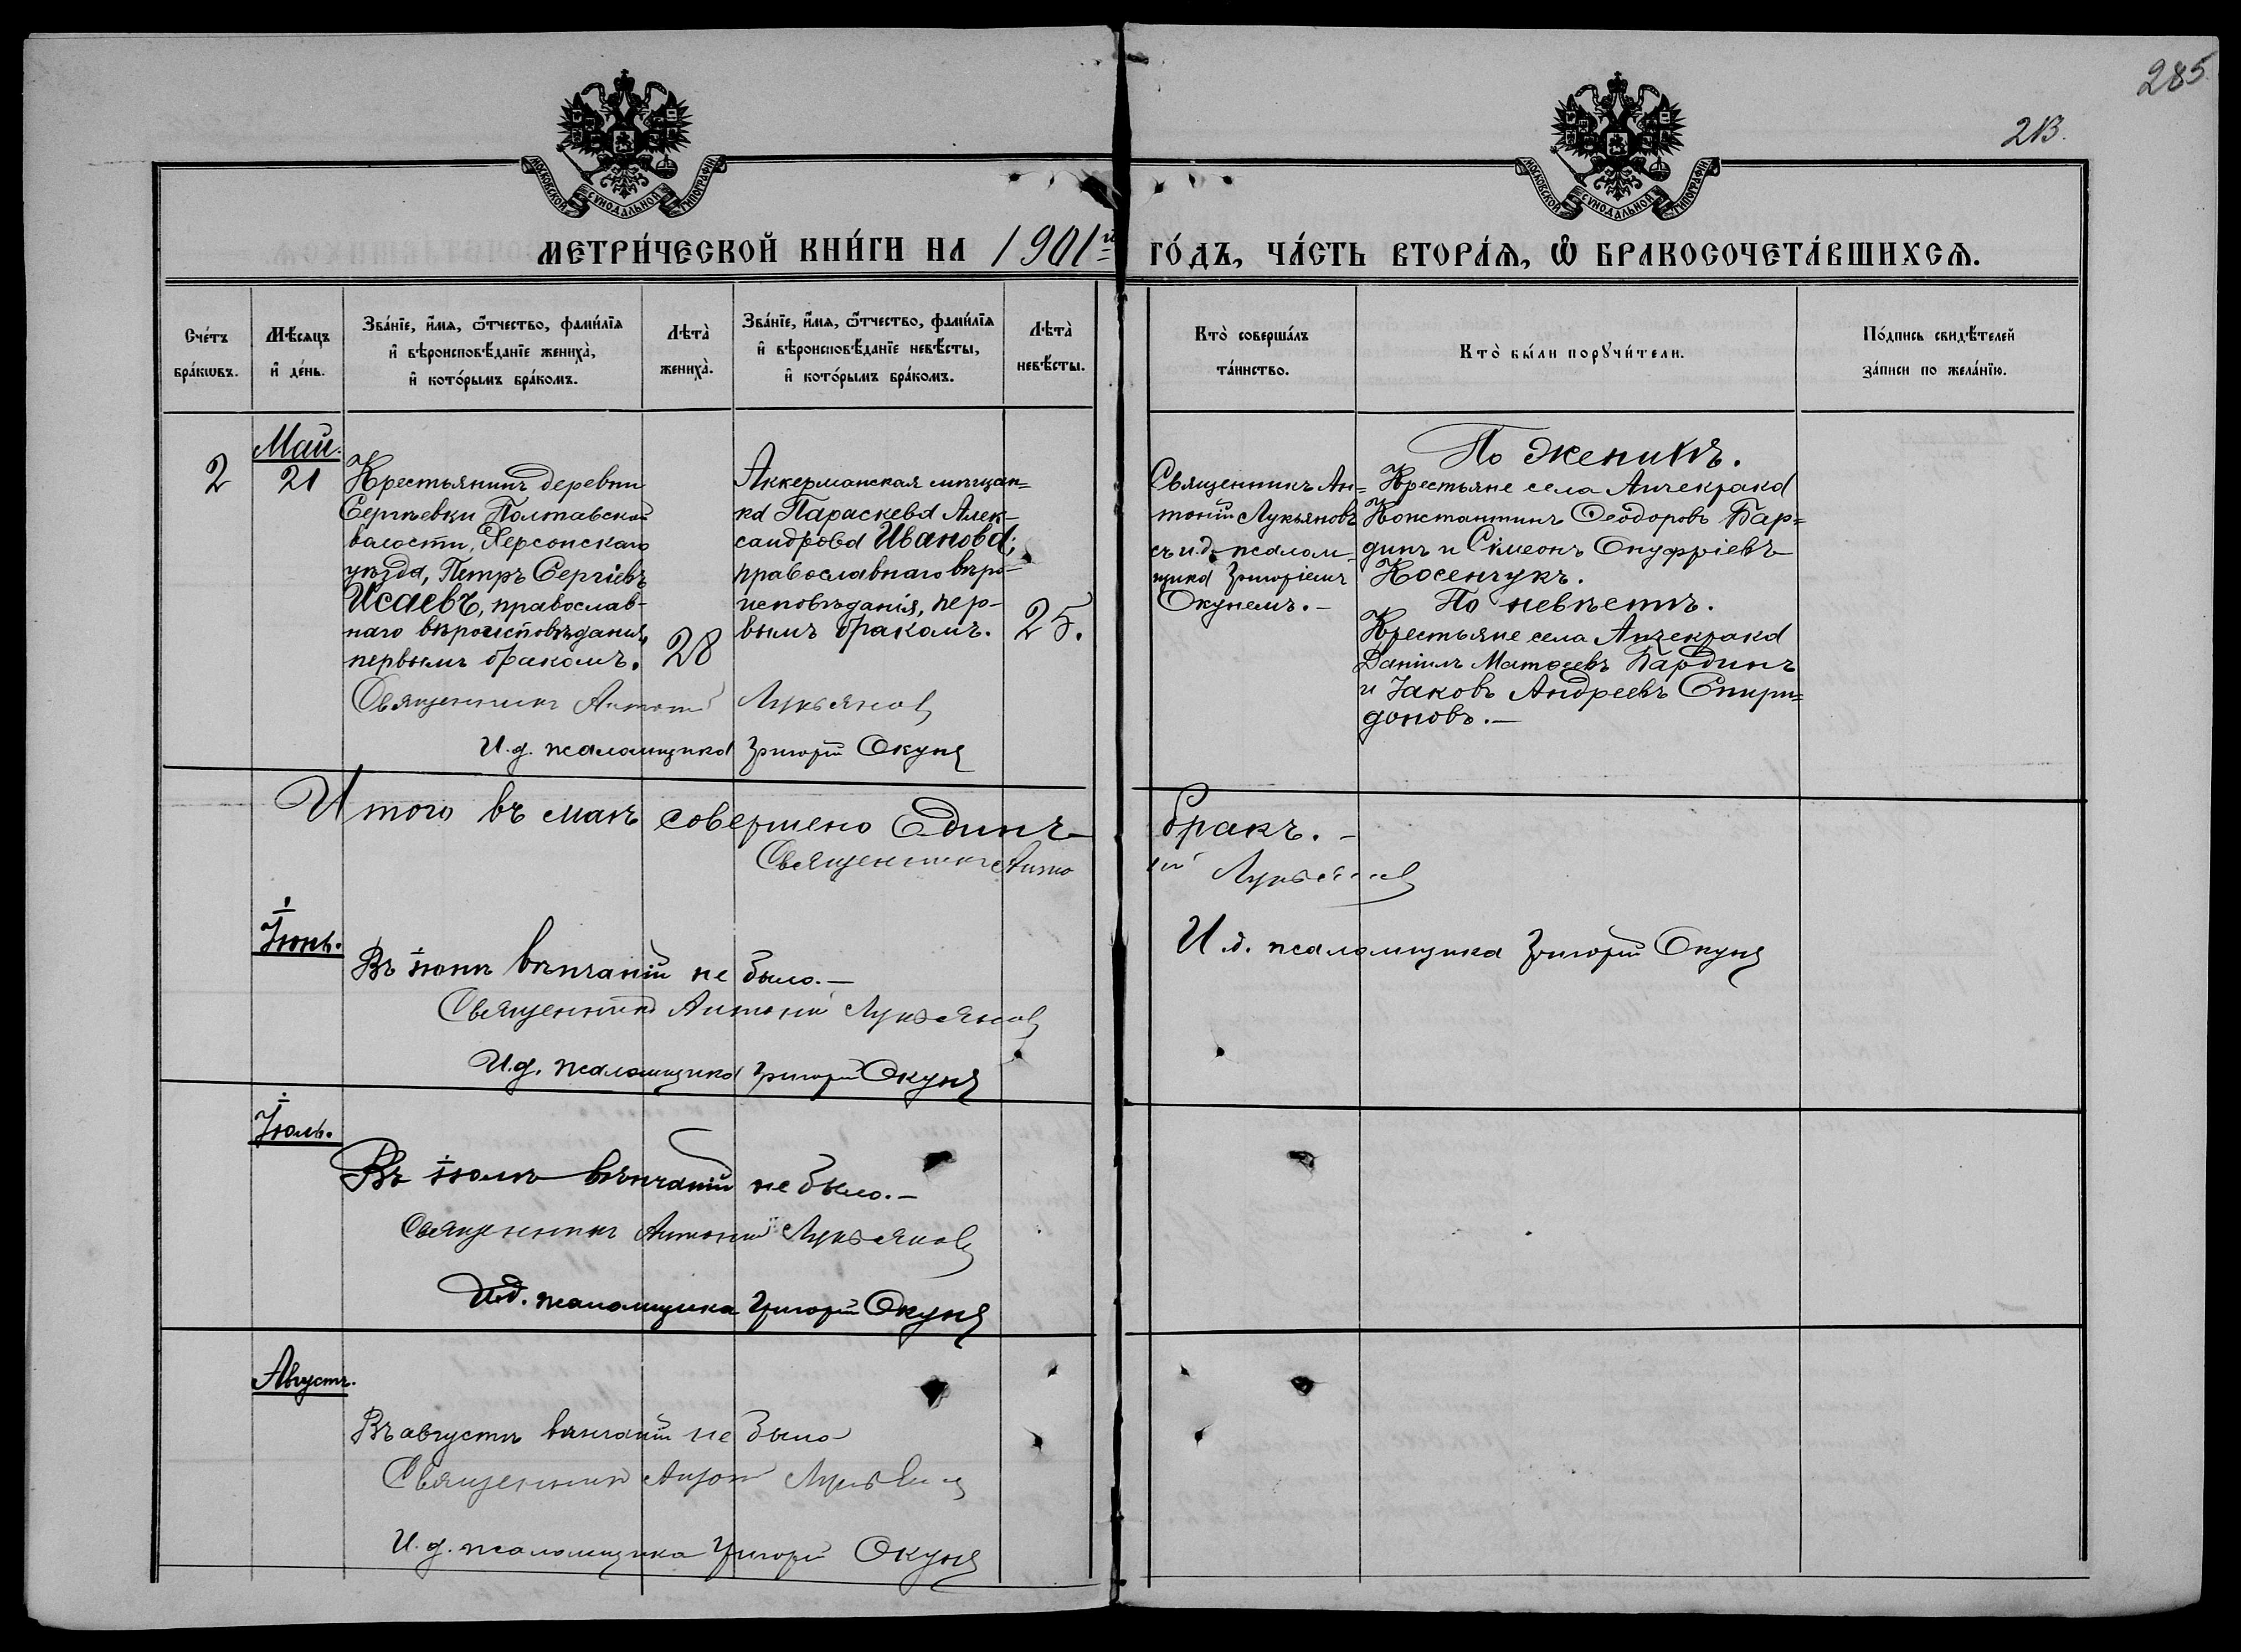 285
213.
МОСКОВСКОЙ СѴНОДАЛЬНОЙ ТИПОГРАФІИ
МОСКОВСКОЙ СѴНОДАЛЬНОЙ ТИПОГРАФІИ
МЕТРИ́ЧЕСКОЙ КНИ́ГИ НА 1901й ГО́ДЪ, ЧА́СТЬ ВТОРА́Ѧ, Ѽ БРАКОСОЧЕТА́ВШИХСѦ.
Сче́тъ
бра́кѡвъ.
Мѣ́сѧцъ
и҆ де́нь.
Зва́нїе, и҆́мѧ, ѻ҆́тчество, фами́лїѧ
и҆ вѣроисповѣ́данїе жениха̀,
и҆ кото́рымъ бра́комъ.
Лѣта̀
жениха̀.
Зва́нїе, и҆́мѧ, ѻ҆́тчество, фами́лїѧ
и҆ вѣроисповѣ́данїе невѣ́сты,
и҆ кото́рымъ бра́комъ.
Лѣта̀
невѣ́сты.
Кто̀ соверша́лъ
та́инство.
Кто̀ бы́ли порꙋчи́тели.
По́дпись свидѣ́телей
за́писи по жела́нїю.
2
Май.
21
Крестьянинъ деревни
Сергѣевки Полтавской
волости, Херсонскаго
уѣзда, Петръ Сергіевъ
Исаевъ, православ-
наго вѣроисповѣданія,
первымъ бракомъ.
28
Аккерманская мѣщан=
ка Параскева Алек-
сандрова Иванова;
православнаго вѣро-
исповѣданія, пер-
вымъ бракомъ.
25.
Священникъ Ан=
тоній Лукьяновъ
съ и.д. псалом-
щика Григоріемъ
Окунемъ.-
По женихѣ.
Крестьяне села Анчекрака
Константинъ Ѳеодоровъ Бар=
динъ и Сімеонъ Онуфріевъ
Косенчукъ.
По невѣстѣ.
Крестьяне села Анчекрака
Даніилъ Матѳеевъ Бардинъ
и Іаковъ Андреевъ Спири=
доновъ.-
Священникъ Антоній Лукьяновъ
И.д. псаломщика Григорій Окунь
Итого въ маѣ совершено Единъ бракъ.-
Священникъ Антоній Лукьяновъ
И.д. псаломщика Григорій Окунь
Іюнь.
Въ іюнѣ вѣнчаній не было.-
Священникъ Антоній Лукьяновъ
И.д. псаломщика Григорій Окунь
Іюль.
Въ іюлѣ вѣнчаній не было.-
Священникъ Антоній Лукьяновъ
И.д. псаломщика Григорій Окунь
Августъ.
Въ августѣ вѣнчаній не было
Священникъ Антоній Лукьяновъ
И.д. псаломщика Григорій Окунь